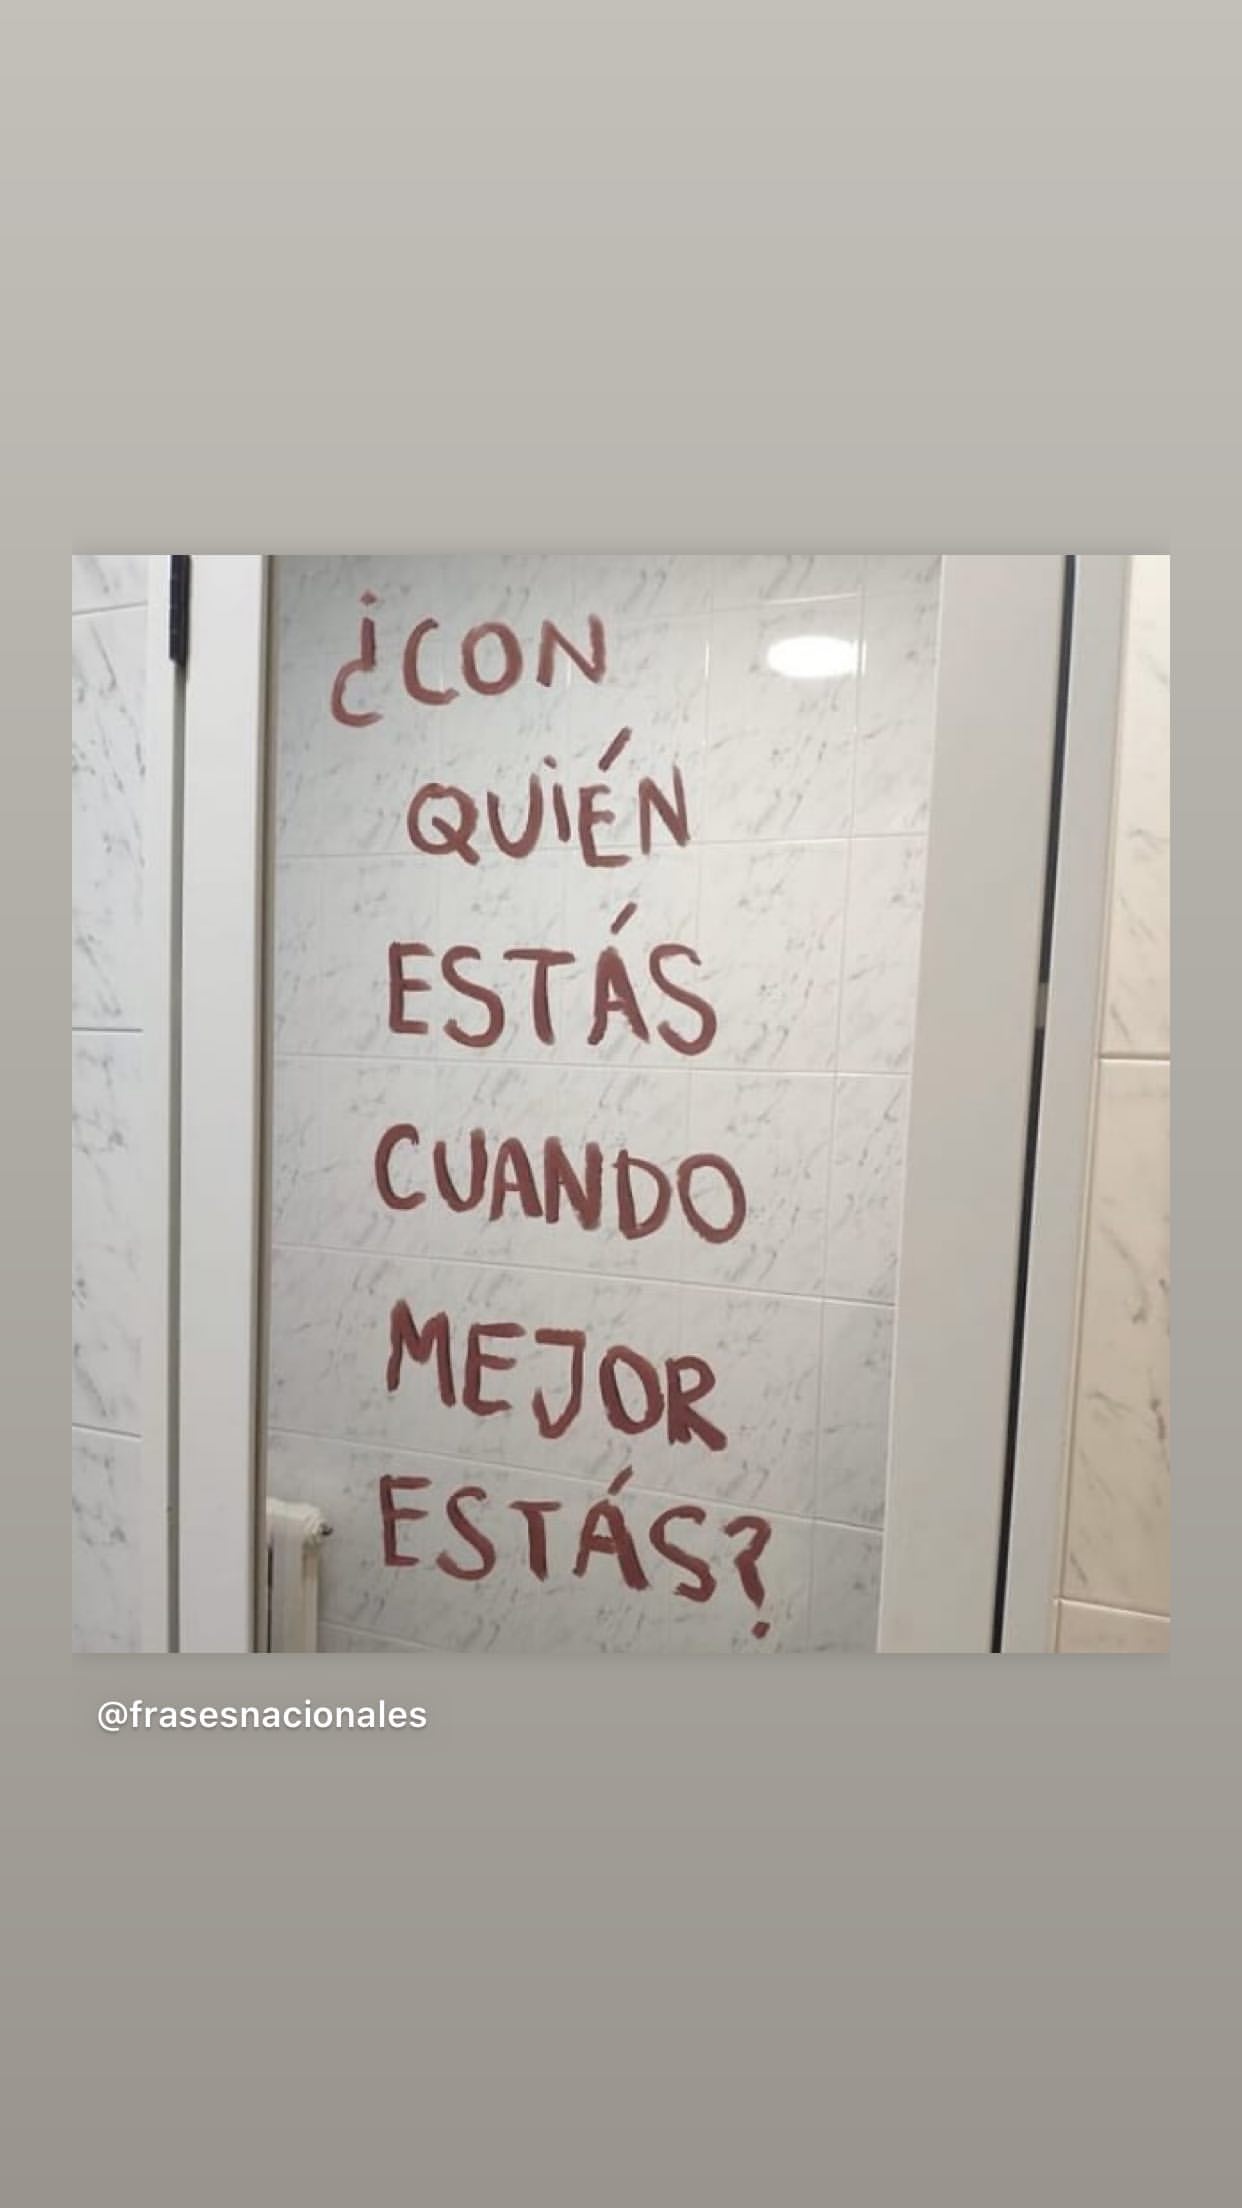 ¿CON
QUIÉN
ESTÁS
CUANDO
MEJOR
ESTÁS?
@frasesnacionales